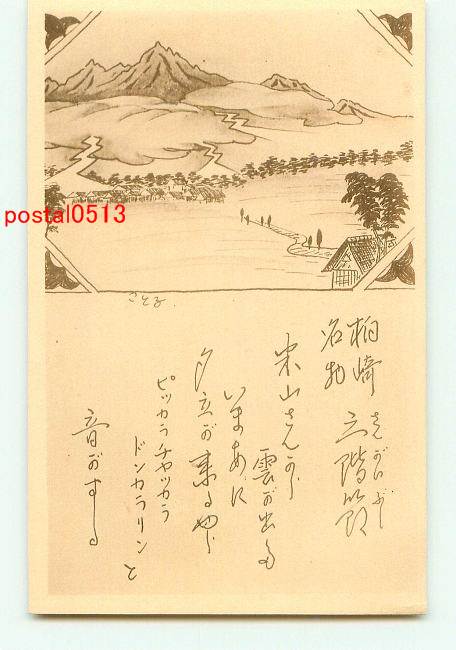 postal0513
柏崎
名物 三階節
さんがいぶし
米山さんから
雲が出た
いまあに
夕立が来るやら
ピッカラチャッカラ
ドンカラリンと
音がする